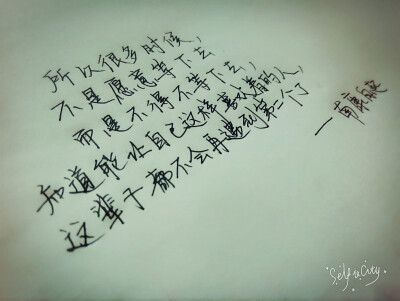 所以很多时候，
不是愿意等下去，
而是不得不等下去，
知道能让自己这样喜欢着的人，
这辈子都不会再遇到第二个了
Self to City